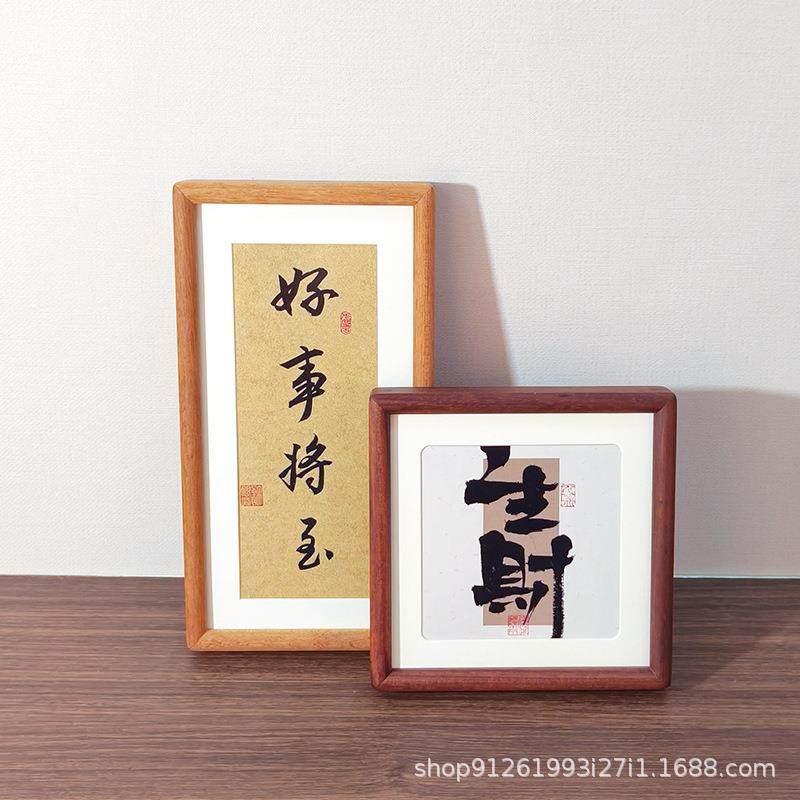 好事将至
生財
shop91261993i27i1.1688.com